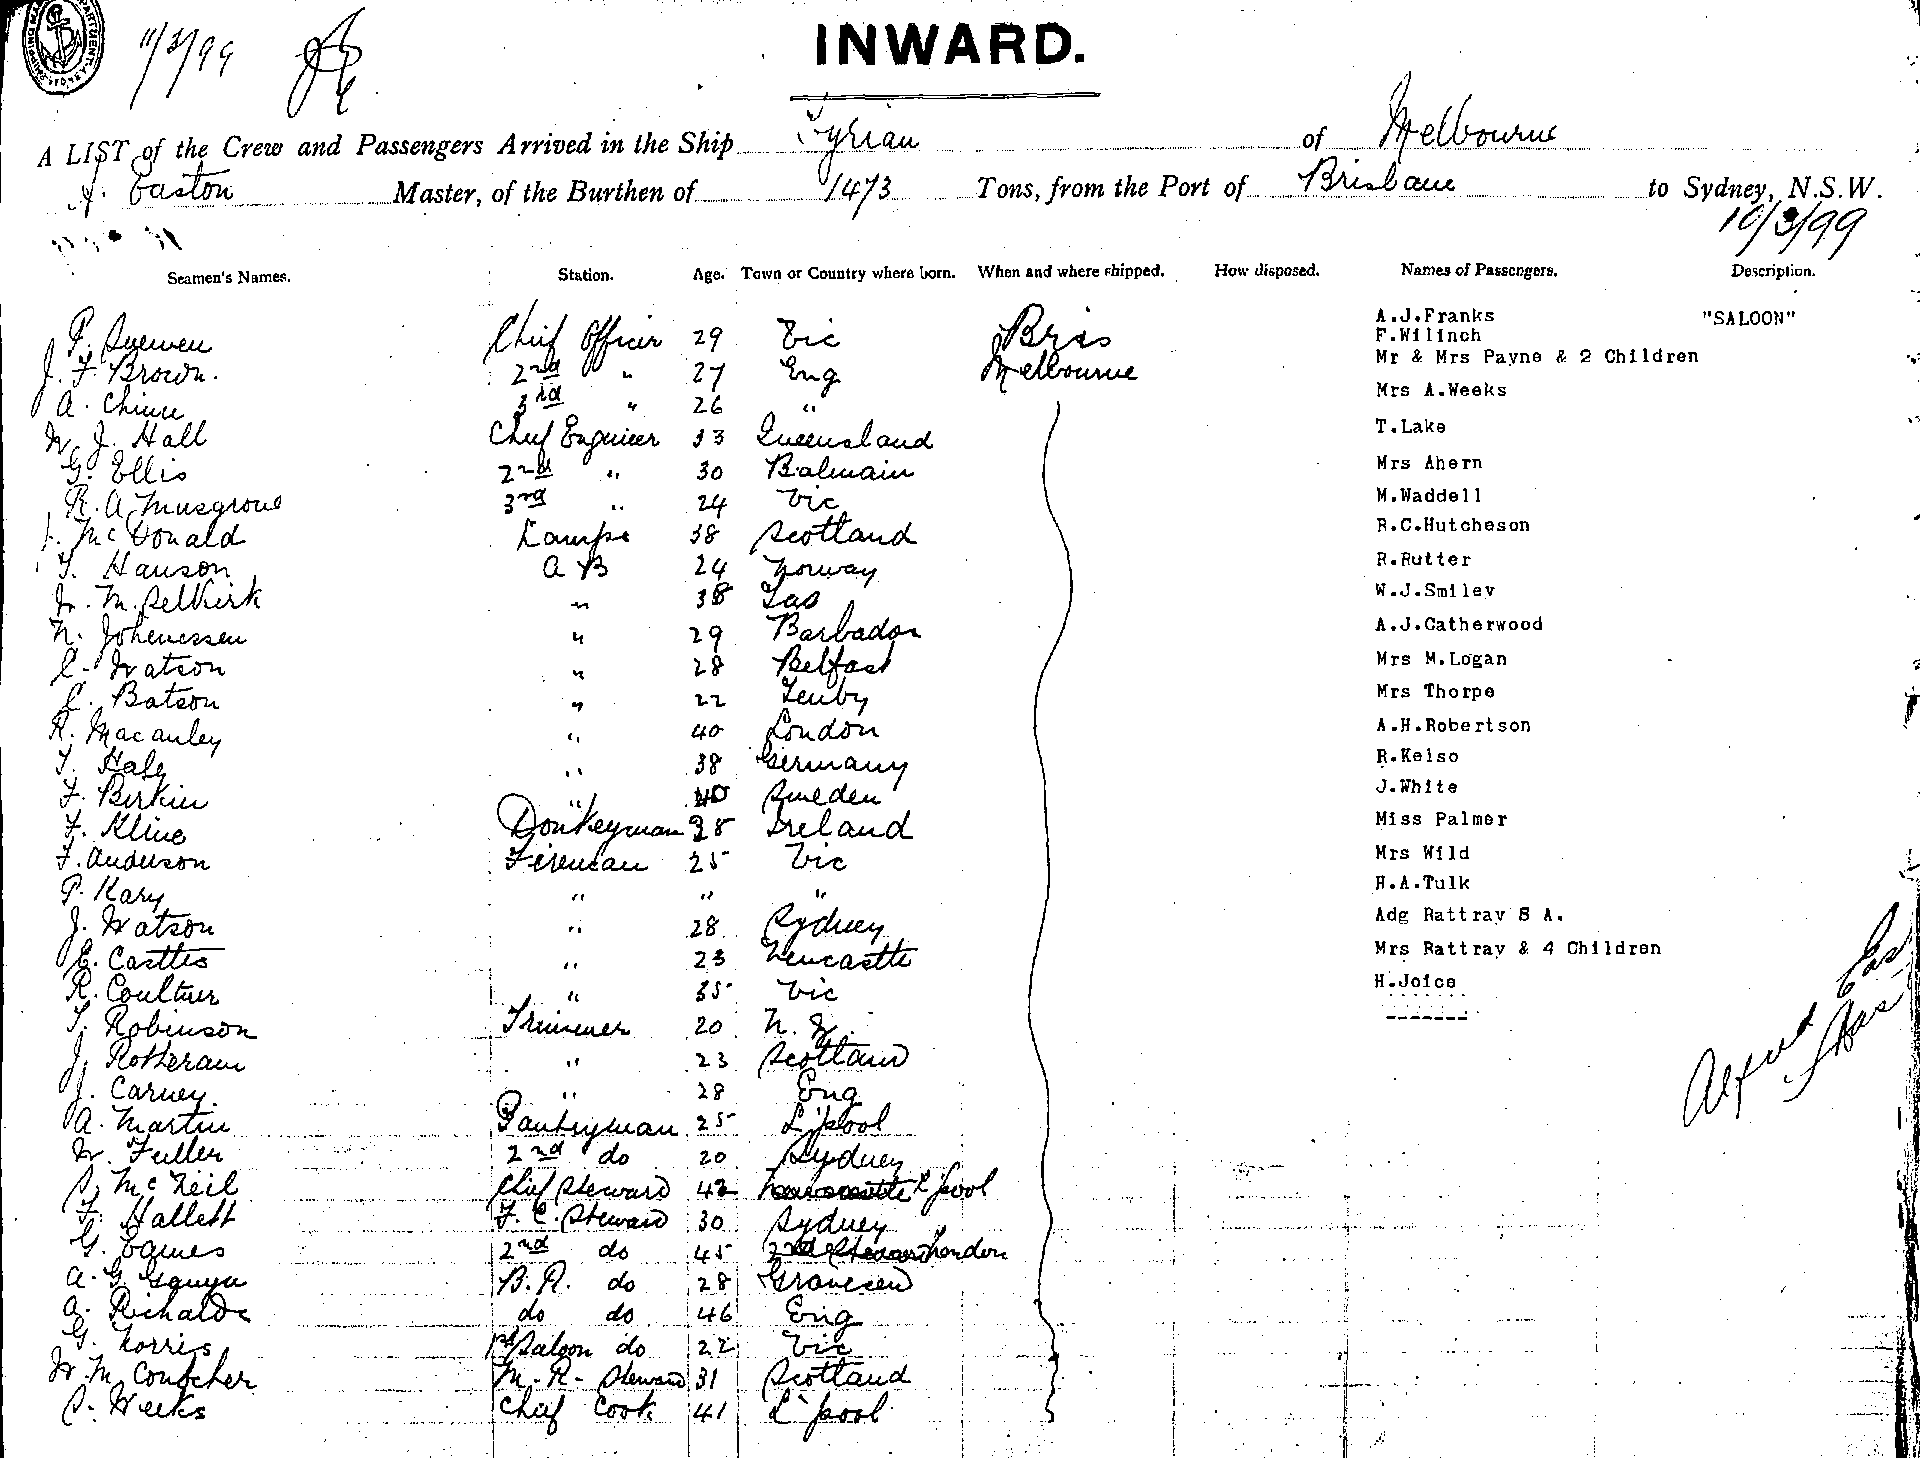 11/3/99
INWARD.
A LIST of the Crew and Passengers Arrived in the Ship Tyrian of Melbourne
J. Easton Master, of the Burthen of 1473 Tons, from the Port of Brisbane to Sydney, N.S.W.
10/3/99
Seamen's Names. Station. Age. Town or Country where born. When and where shipped. How disposed. Names of Passengers. Description.
P. Chief Officer 29 Vic Bris A.J.Franks "SALOON"
F.Wilinch
J. F. Brown. 2nd " 27 Eng Melbourne Mr & Mrs Payne & 2 Children
A. 3rd " 26 " Mrs A.Weeks
W. J. Hall Chief Engineer 33 Queensland T.Lake
G. Ellis 2nd " 30 Balmain Mrs Ahern
R. A Musgrove 3rd " 24 Vic M.Waddell
McDonald Lamps 38 Scotland R.C.Hutcheson
T. Hanson A B 24 Norway R.Rutter
W. M. Selkirk " 38 Tas W.J.Smiley
N. Johenessen " 29 Barbados A.J.Catherwood
C. Watson " 28 Belfast Mrs M.Logan
C. Batson " 22 Tenby Mrs Thorpe
R. Macauley " 40 London A.H.Robertson
T. " 38 Germany R.Kelso
F. Berkin " 40 Sweden J.White
F. Kline Donkeyman 28 Ireland Miss Palmer
F. Anderson Fireman 25 Vic Mrs Wild
P. Kary " " " H.A.Tulk
J. Watson " 28 Sydney Adg Rattray S A.
E. Castles " 23 Newcastle Mrs Rattray & 4 Children
R. Coultner " 35 Vic H.Joice
T. Robinson Trimmer 20 N. Z.
J. Rotheram " 23 Scotland
J. Carney. " 28 Eng
A. Martin Pantryman 25 L'pool
W. Fuller 2nd do 20 Sydney
S. McNeil Chief Steward 42 Newcastle L'pool
F. Hallett F. C. Steward 30 Sydney
G. Eames 2nd do 45 2nd Steward London
A. G. B. R. do 28 Gravesend
A. Richards do do 46 Eng
G. Norris Saloon do 22 Vic
W. M. Conocher M. R. Steward 31 Scotland
S. Weeks Chief Cook 41 L'pool
Alfred